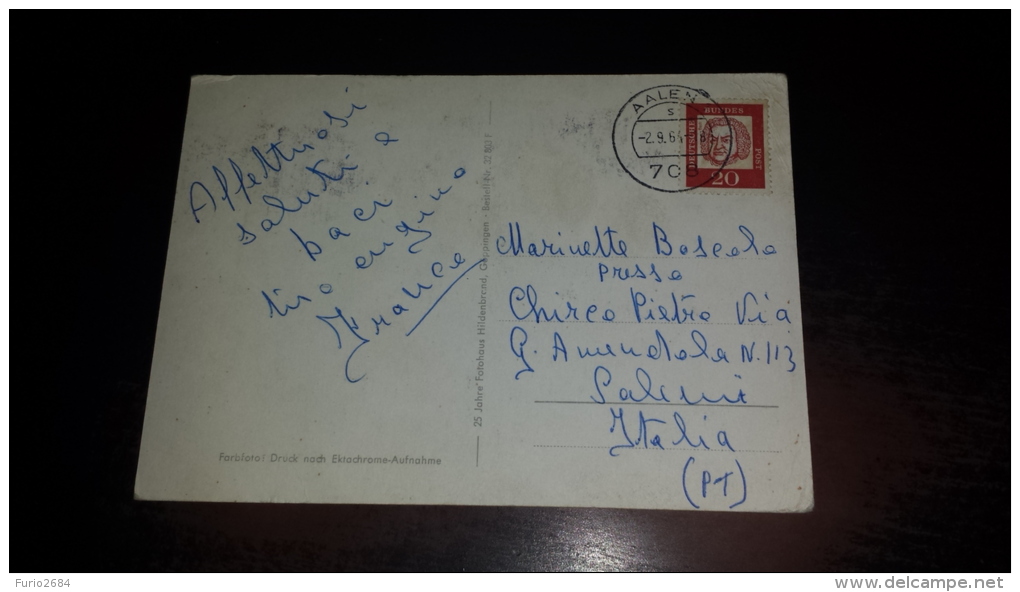 Affettuosi
saluti e
baci
tuo cugino
Franco
Farbfoto! Druck nach Ektachrome-Aufnahme
25 Jahre Fotohaus Hildenbrand, Göppingen · Bestell-Nr. 32 801 F
AALEN
s
-2.9.64
708
DEUTSCHE
BUNDES
POST
20
Marinette Boscolo
presso
Chirco Pietro Via
G. Amendola N. 113
Salemi
Italia
(PT)
Furio2684
www.delcampe.net